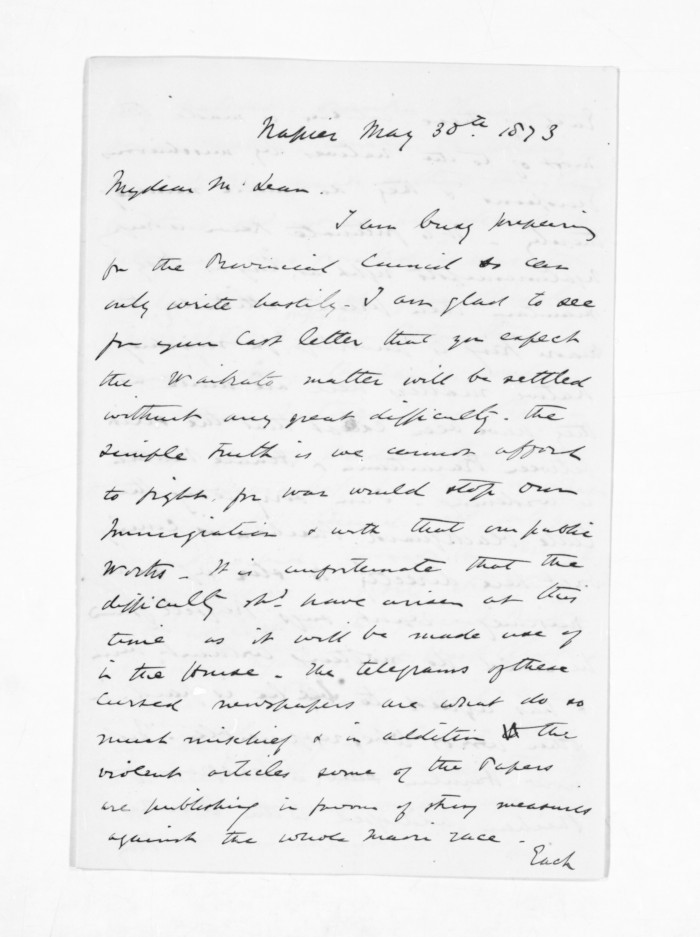 Napier May 30th 1873
My dear McLean.
I am busy preparing
for the Provincial Council & can
only write hastily - I am glad to see
from your last letter that you expect
the Waikato matter will be settled
without any great difficulty. The
simple truth is we cannot afford
to fight. for war would stop our
Immigration & with that our public
Works - It is unfortunate that the
difficulty shd. have arisen at this
time as it will be made use of
in the House - The telegrams of these
cursed newspapers are what do so
much mischief & in addition the
violent articles some of the Papers
are publishing in favour of strong measures
against the whole Maori race -
Each